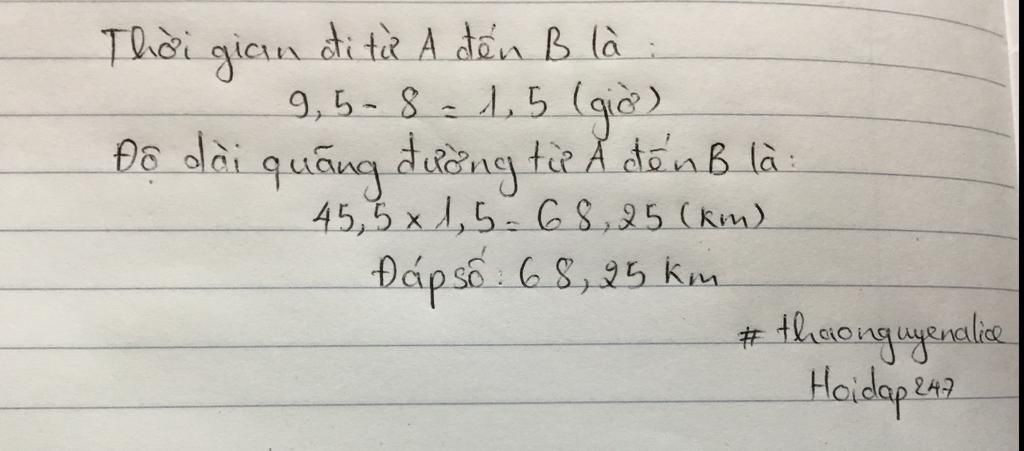 Thời gian đi từ A đến B là :
9,5 - 8 = 1,5 (giờ)
Độ dài quãng đường từ A đến B là:
45,5 x 1,5 = 68,25 (km)
Đáp số: 68,25 km
# thaonguyenalice
Hoidap247